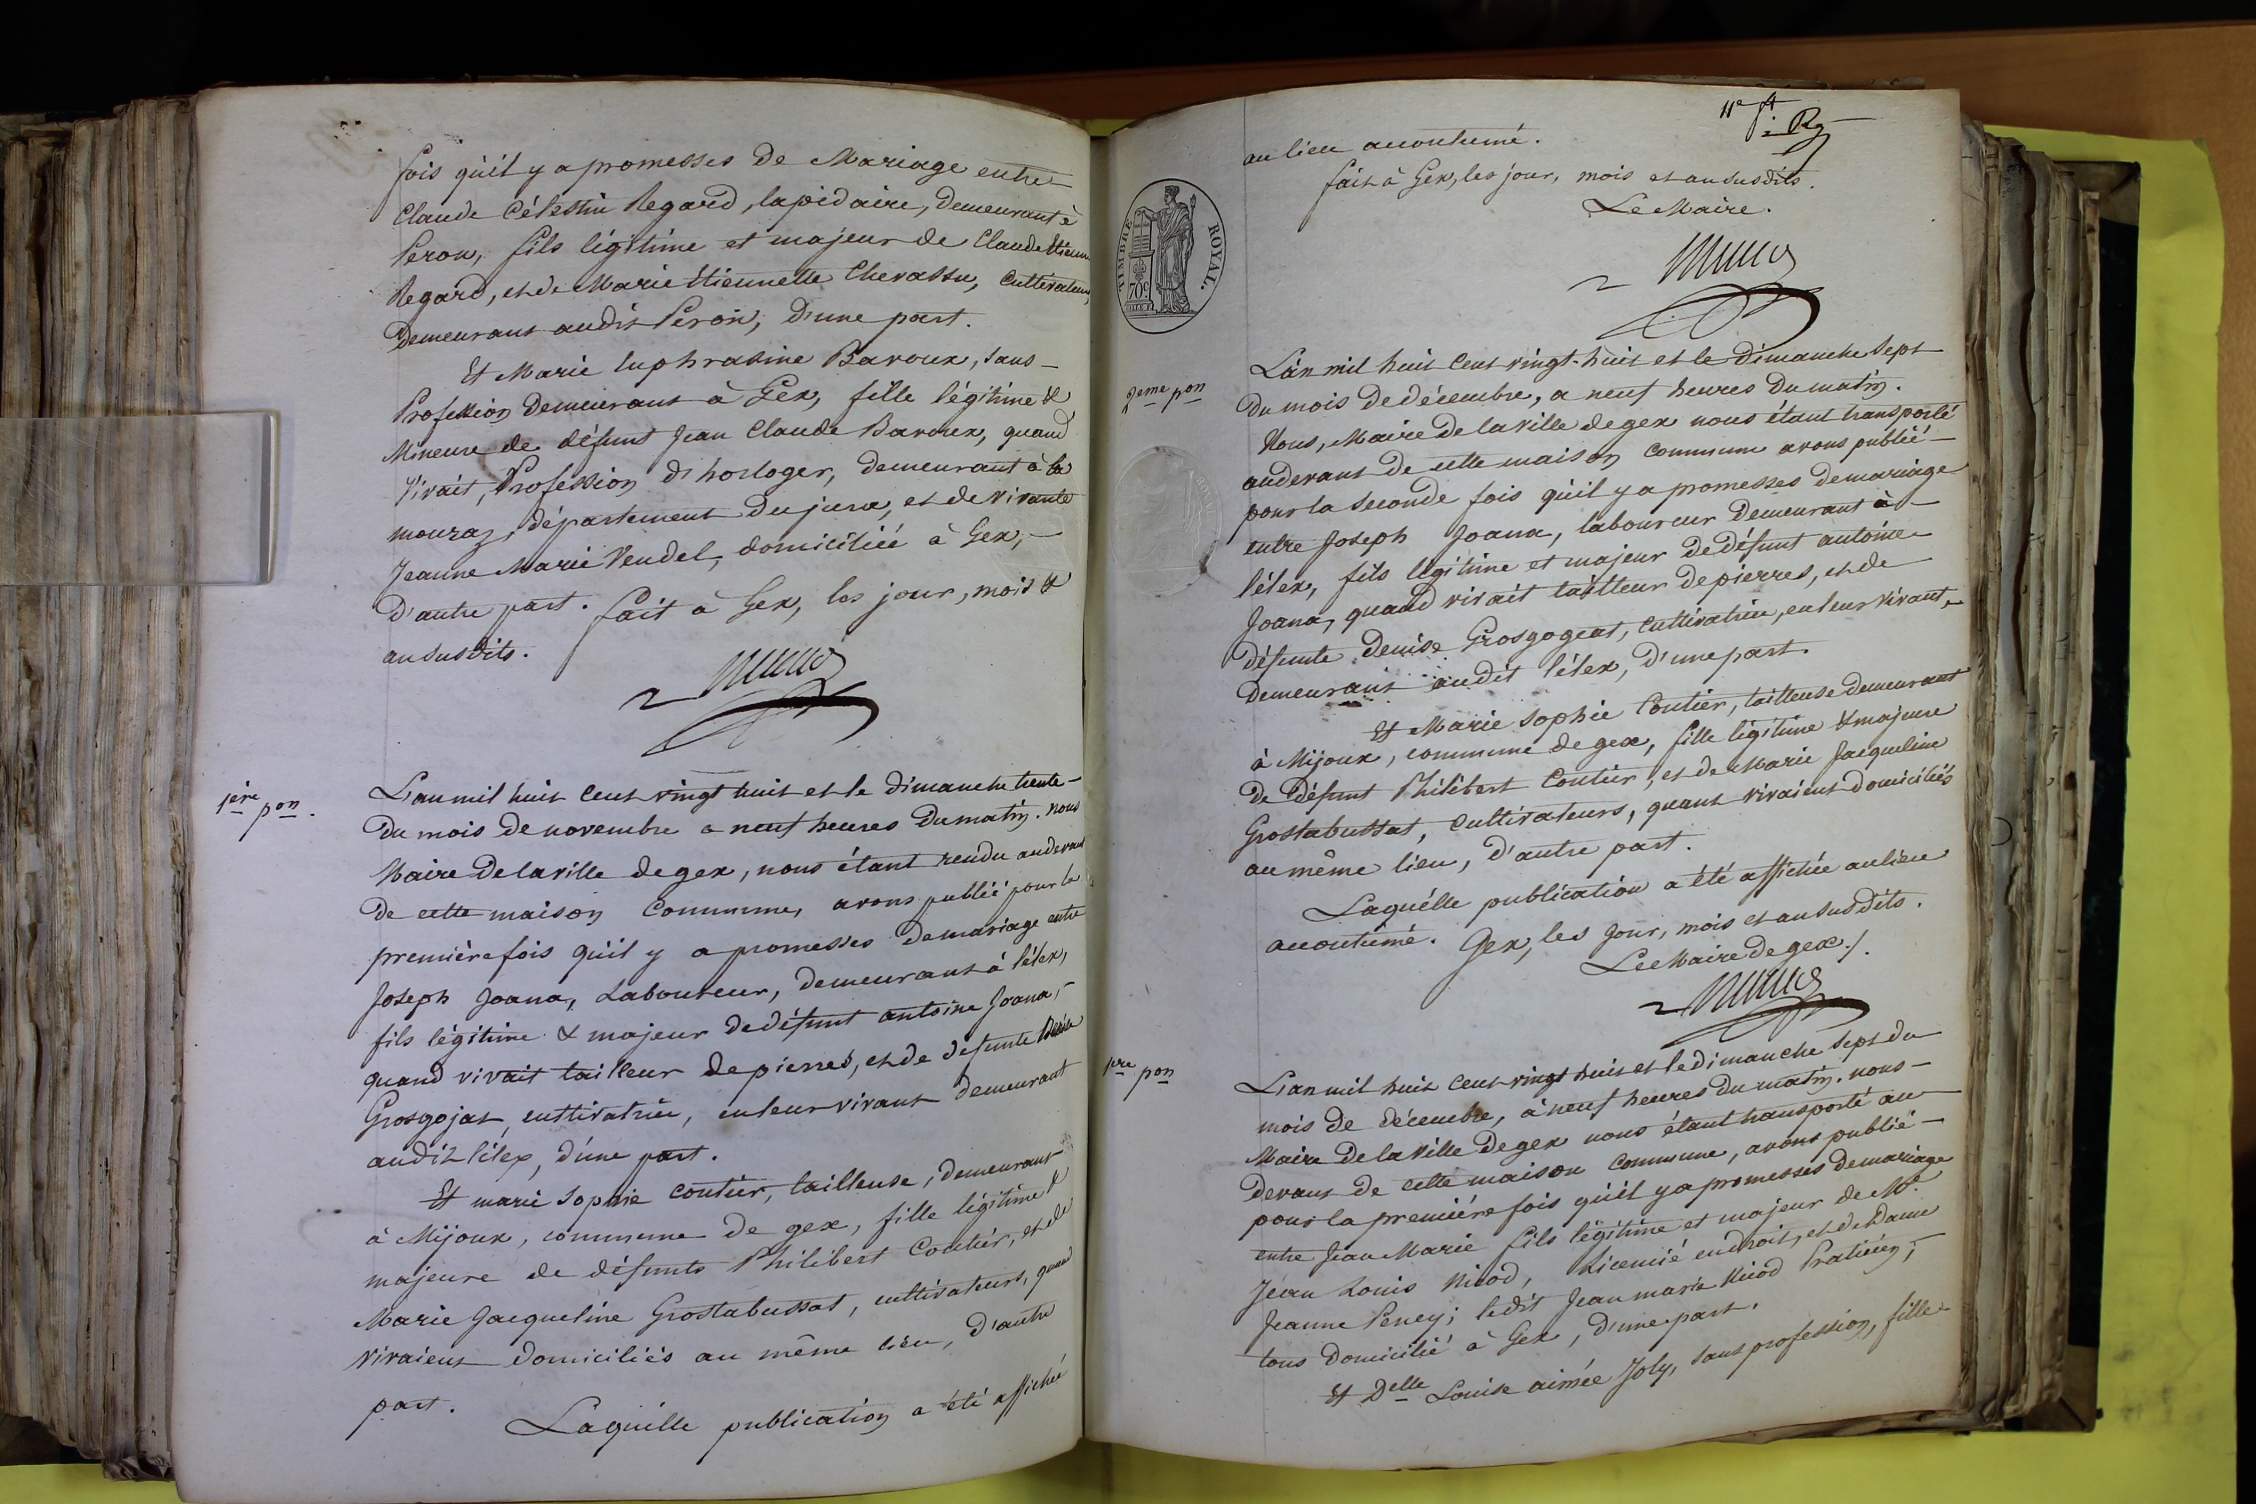 fois qu'il y a promesses de Mariage entre
Claude Célestin Regard, lapidaire, demeurant à
Peron, fils légitime et majeur de Claude Etienne
Regard, et de Marie Etiennette Chevassu, Cultivateurs,
demeurans audit Peron, d'une part.
Et Marie Euphrasine Baroux, sans
Profession demeurant à Gex, fille légitime &
Mineure de défunt Jean Claude Baroux, quand
vivait, Profession d'horloger, demeurant à la
mouraz, département du jura, et de vivante
Jeanne Marie Vendel, domiciliée à Gex,
d'autre part. fait à Gex, les jour, mois &
an susdits.
1ère pon.
L'an mil huit cent vingt huit et le dimanche trente
du mois de novembre a neuf heures du matin. nous
Maire de la ville de gex, nous étant rendu audevant
de cette maison Commune, avons publié pour la
première fois qu'il y a promesses de mariage entre
Joseph Joana, Laboureur, demeurant à lélex,
fils légitime & majeur de défunt antoine Joana,
quand vivait tailleur de pierres, et de défunte Denise
Grosgojat, cultivatrice, en leur vivant demeurant
audit lélex, d'une part.
Et marie Sophie Coutier, tailleuse, demeurant
à Mijoux, commune de gex, fille légitime &
majeure de défunts Philibert Coutier, et de
Marie Jacqueline Grostabussat, cultivateurs, quand
vivaient domiciliés au même lieu, d'autre
part.
Laquelle publication a été affichée
11e ft
Rg
au lieu accoutumé.
fait à Gex, les jour, mois et an susdits.
Le Maire.
TIMBRE ROYAL.
70c
2eme pon
L'an mil huit cent vingt-huit et le dimanche sept
du mois de décembre, a neuf heures du matin.
Nous, Maire de la ville de gex nous étant transporté
audevant de cette maison commune avons publié
pour la seconde fois qu'il y a promesses de mariage
entre Joseph Joana, laboureur demeurant à
lélex, fils légitime et majeur de défunt antoine
Joana, quand vivait tailleur de pierres, et de
défunte Denise Grosgogeat, cultivatrice, en leur vivant,
demeurant audit lélex, d'une part.
Et Marie Sophie Coutier, tailleuse demeurant
à Mijoux, commune de gex, fille légitime & majeure
de défunt Philibert Coutier, et de Marie Jacqueline
Grostabussat, cultivateurs, quant vivaient domiciliés
au même lieu, d'autre part.
Laquelle publication a été affichée au lieu
accoutumé. Gex, les jour, mois et an susdits.
Le Maire de gex./.
1re pon
L'an mil huit cent vingt huit et le dimanche sept du
mois de décembre, à neuf heures du matin. nous
Maire de la ville de gex nous étant transporté au
devant de cette maison commune, avons publié
pour la première fois qu'il y a promesses de mariage
entre Jean Marie fils légitime et majeur de Mr
Jean Louis Nicod, licencié en droit, et de Dame
Jeanne Peney; ledit Jean marie Nicod Praticien;
tous domicilié à Gex, d'une part.
Et Delle Louise aimée Joly, sans profession, fille